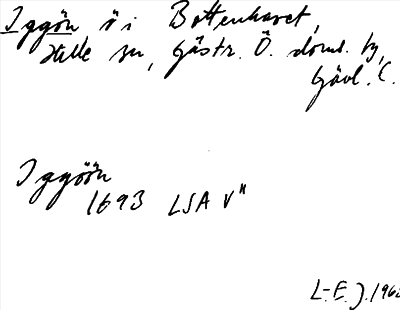 Iggön ö i Bottenhavet,
Hille sn, Gästr. Ö. doms. by,
Gävl. l.
Iggöön
1693 LSA V"
L-E. J. 196